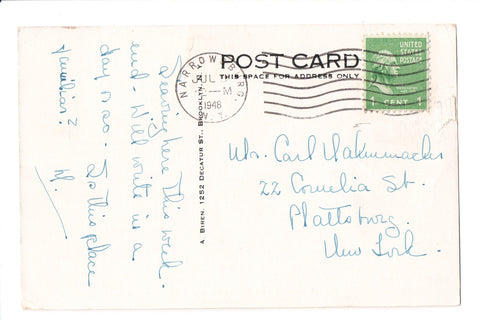 Leaving here this week-
end - Will write in a
day or so. Is this place
familiar?
POST CARD
THIS SPACE FOR ADDRESS ONLY
A. BIREN, 1252 DECATUR ST., BROOKLYN, N.
NARROWSBURG,
JUL
M
1948
N.Y.
UNITED
STATES
POSTAGE
1 CENT 1
Mr. Carl
22 Cornelia St.
Plattsburg,
New York.